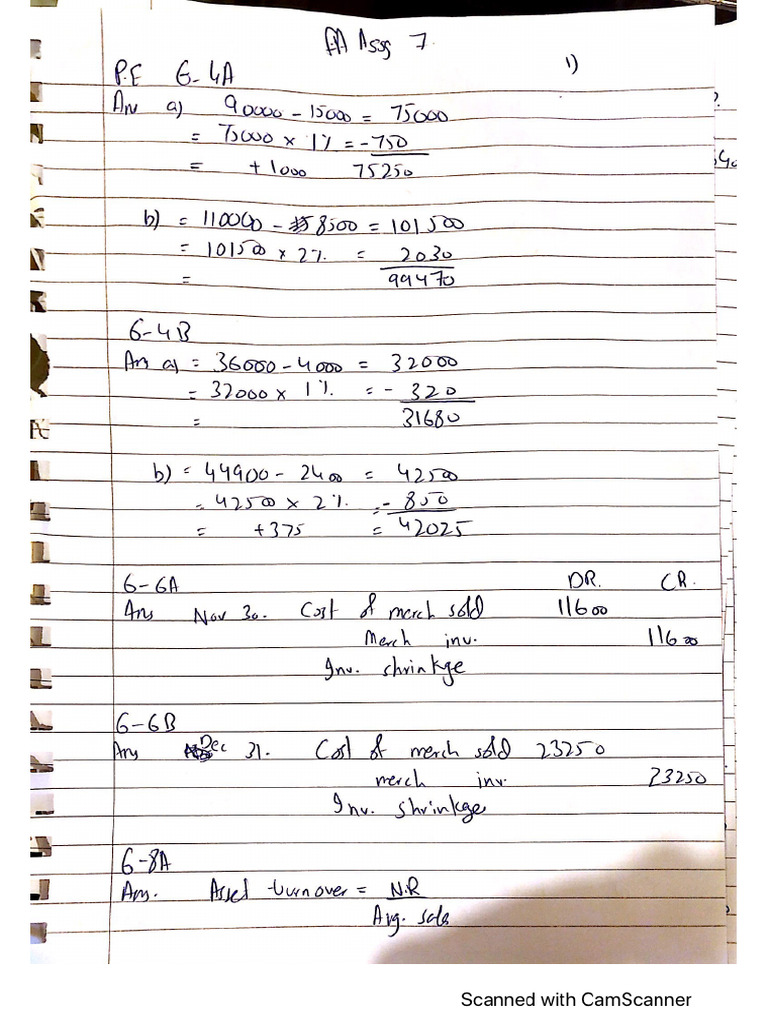 FA Assg 7.
P.E 6-4A 1)
Ans a) 90000 - 15000 = 75000
= 75000 x 1% = - 750
= + 1000 75250
b) = 110000 - 8500 = 101500
= 101500 x 2% = 2030
= 99470
6-4B
Ans a) = 36000 - 4000 = 32000
= 32000 x 1% = - 320
= 31680
b) = 44900 - 2400 = 42500
= 42500 x 2% = - 850
= +375 = 42025
6-6A DR. CR.
Ans Nov 30. Cost of merch sold 11600
Merch inv. 11600
Inv. shrinkge
6-6B
Ans Dec 31. Cost of merch sold 23250
merch inv. 23250
Inv. shrinkge
6-8A
Ans. Asset turnover = N.R
Avg. sale
Scanned with CamScanner